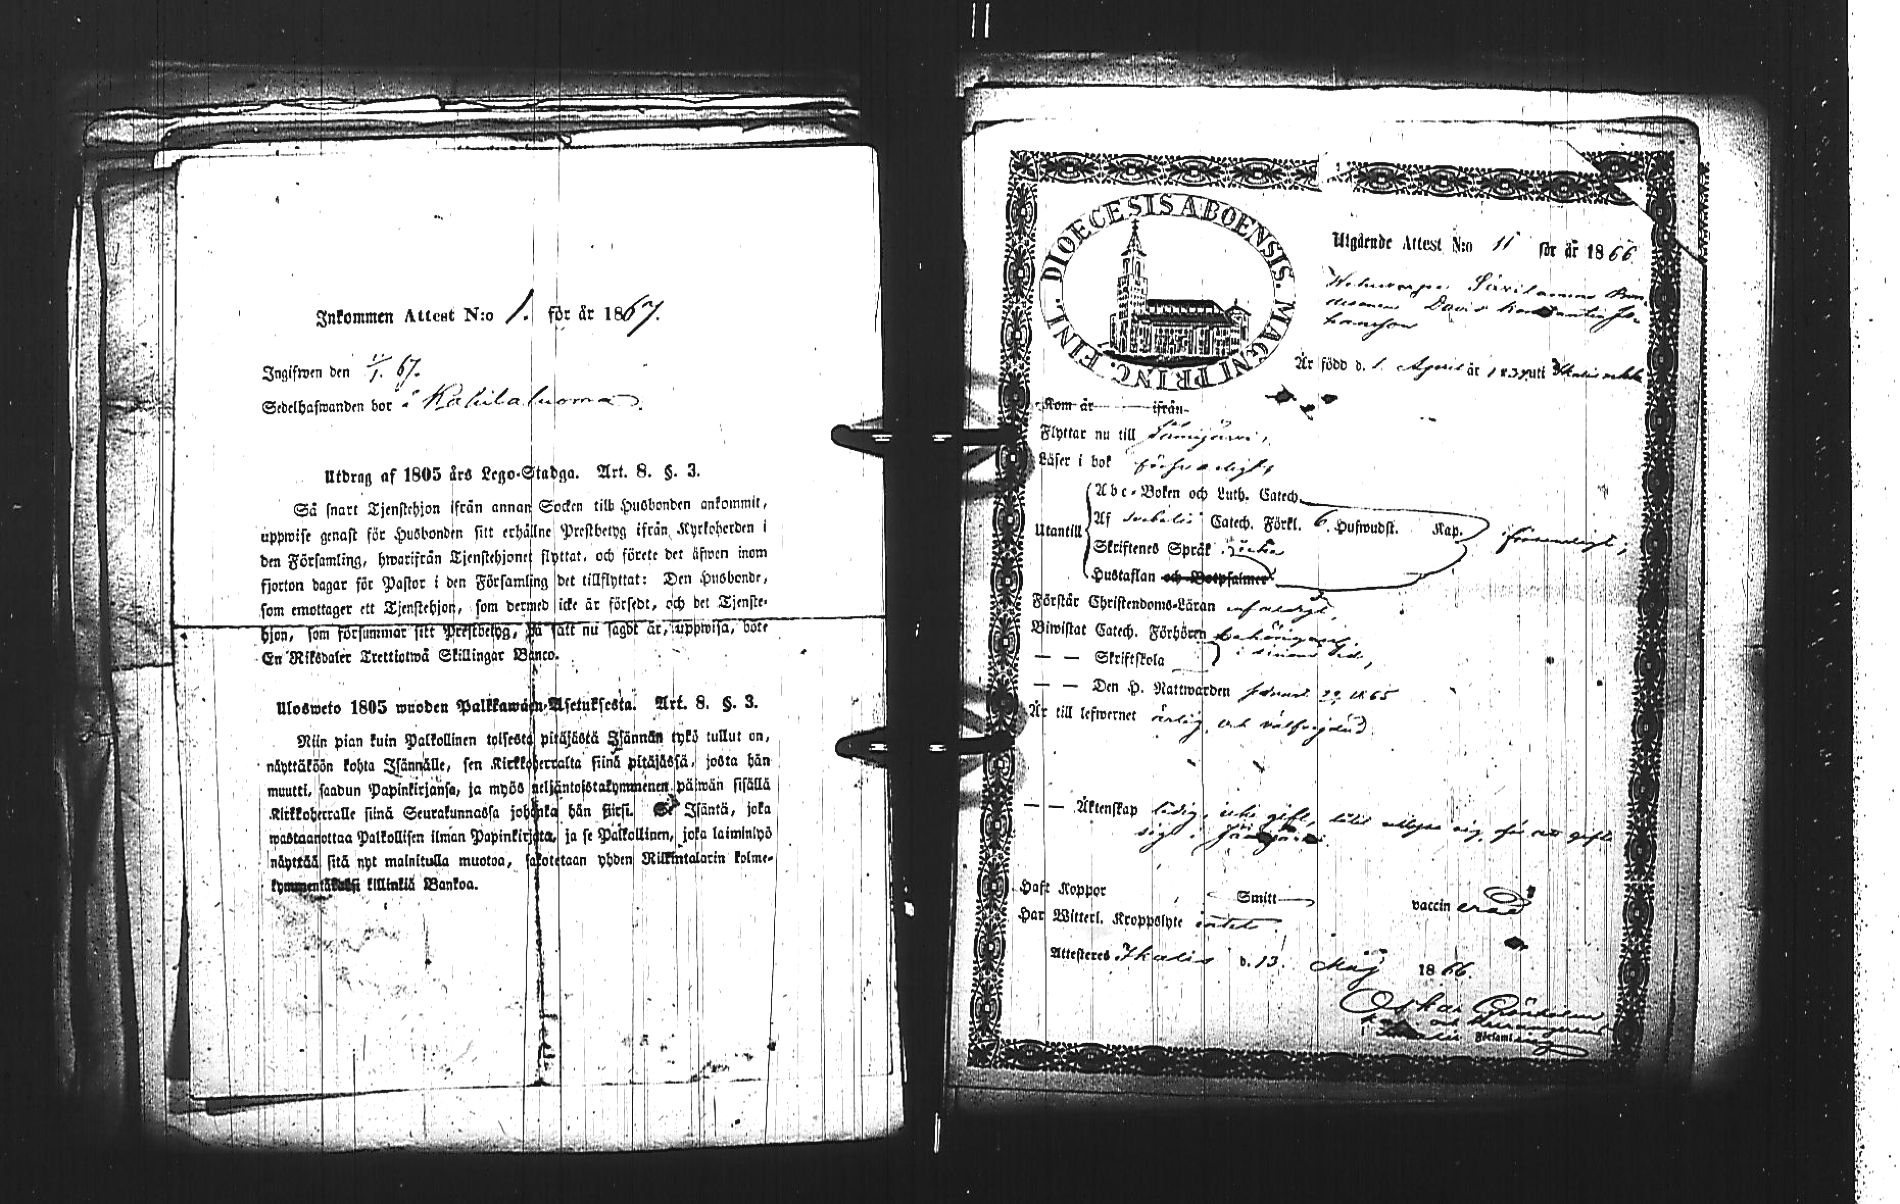 Inkommen Attest N:o 1. för år 1867.
Ingifwen den 11/1. 67.
Sedelhafwanden bor i Kahilaluoma.
Utdrag af 1805 års Lego-Stadga. Art. 8. §. 3.
Så snart Tjenstehjon ifrån annan Socken till Husbonden ankommit,
uppwise genast för Husbonden sitt erhållne Prestbetyg ifrån Kyrkoherden i
den Församling, hwarifrån Tjenstehjonet flyttat, och förete det äfwen inom
fjorton dagar för Pastor i den Församling det tillflyttat: Den Husbonde,
som emottager ett Tjenstehjon, som dermed icke är försedt, och det Tjenste-
hjon, som försummar sitt Prestbetyg, på sätt nu sagdt är, uppwisa, böte
En Riksdaler Trettiotwå Skillingar Banco.
Ulosweto 1805 wuoden Palkkawäen-Asetuksesta. Art. 8. §. 3.
Niin pian kuin Palkollinen toisesta pitäjästä Isännän tykö tullut on,
näyttäköön kohta Isännälle, sen Kirkkoherralta siinä pitäjässä, josta hän
muutti, saadun Papinkirjansa, ja myös neljäntoistakymmenen päiwän sisällä
Kirkkoherralle siinä Seurakunnassa johonka hän siirsi. Se Isäntä, joka
wastaanottaa Palkollisen ilman Papinkirjata, ja se Palkollinen, joka laiminlyö
näyttää sitä nyt mainitulla muotoa, sakotetaan yhden Riikintalarin kolme-
kymmentäkaksi killinkiä Bankoa.
DIOECESIS ABOENSIS. MAGNI PRINC. FINL.
Utgående Attest N:o 11 för år 1866
David
Är född d. 1. April år 183 uti
Kom år ifrån
Flyttar nu till Jämijärvi,
Läser i bok försvarligt,
Utantill
Abc-Boken och Luth. Catech.
Af Catech. Förkl. 6. Hufwudst. Kap. försvarligt,
Skriftenes Språk
Hustaflan och Botpsalmer
Förstår Christendoms-Läran
Biwistat Catech. Förhören behörigen
— — Skriftskola i sinom tid,
— — Den H. Nattwarden 22, 1865
Är till lefwernet ärlig och välfrejdad
— — Äktenskap ledig, icke gift,
sig i Jämijärvi.
Haft Koppor Smitt vaccinerad
Har Witterl. Kroppslyte intet
Attesteras Ikalis d. 13. Maj 1866.
Oskar
Församl